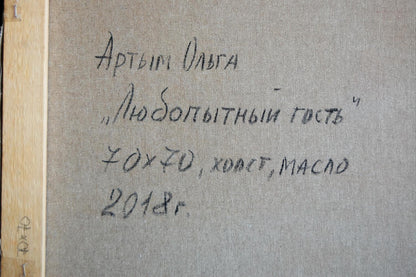 Артым Ольга
„Любопытный гость"
70х70, холст, масло
2018г.